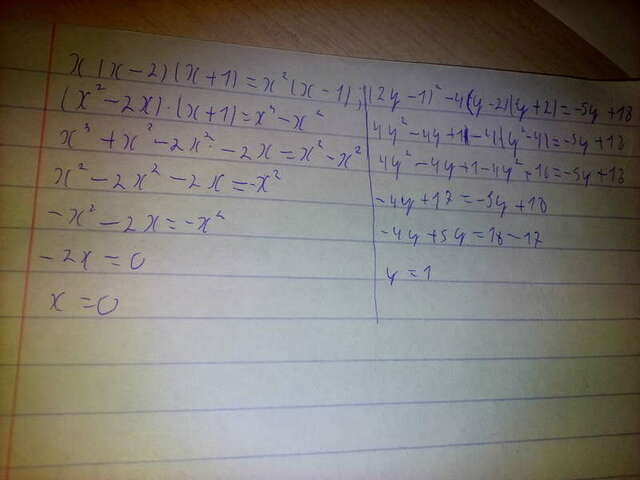 x(x-2)(x+1)=x²(x-1);
(x²-2x)·(x+1)=x³-x²
x³+x²-2x²-2x=x³-x²
x²-2x²-2x=-x²
-x²-2x=-x²
-2x=0
x=0
(2y-1)²-4(y-2)(y+2)=-5y+18
4y²-4y+1-4(y²-4)=-5y+18
4y²-4y+1-4y²+16=-5y+18
-4y+17=-5y+18
-4y+5y=18-17
y=1